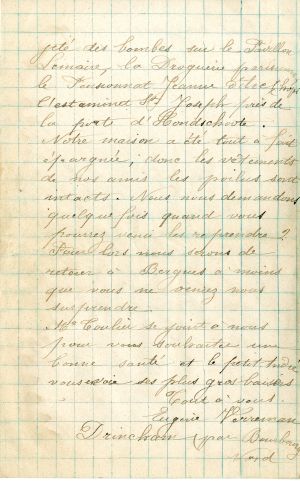 jeté des bombes sur le Pavillon
Lemaire, la Droguerie parisienne
le Pensionnat Jeanne d'Arc,
l'estaminet St Joseph près de
la porte d'Hondschoote.
Notre maison a été tout à fait
épargnée; donc les vêtements
de nos amis les poilus sont
intacts. Nous nous demandons
quelque fois quand vous
pourrez venir les reprendre?
lors nous serons de
retour à Bergues à moins
que vous ne veniez nous
surprendre.
se joint à nous
pour vous souhaiter une
bonne santé et le petit André
vous envoie ses plus gros baisers
Tout à vous.
Eugénie Verreman
Drincham par Bourbourg
Nord